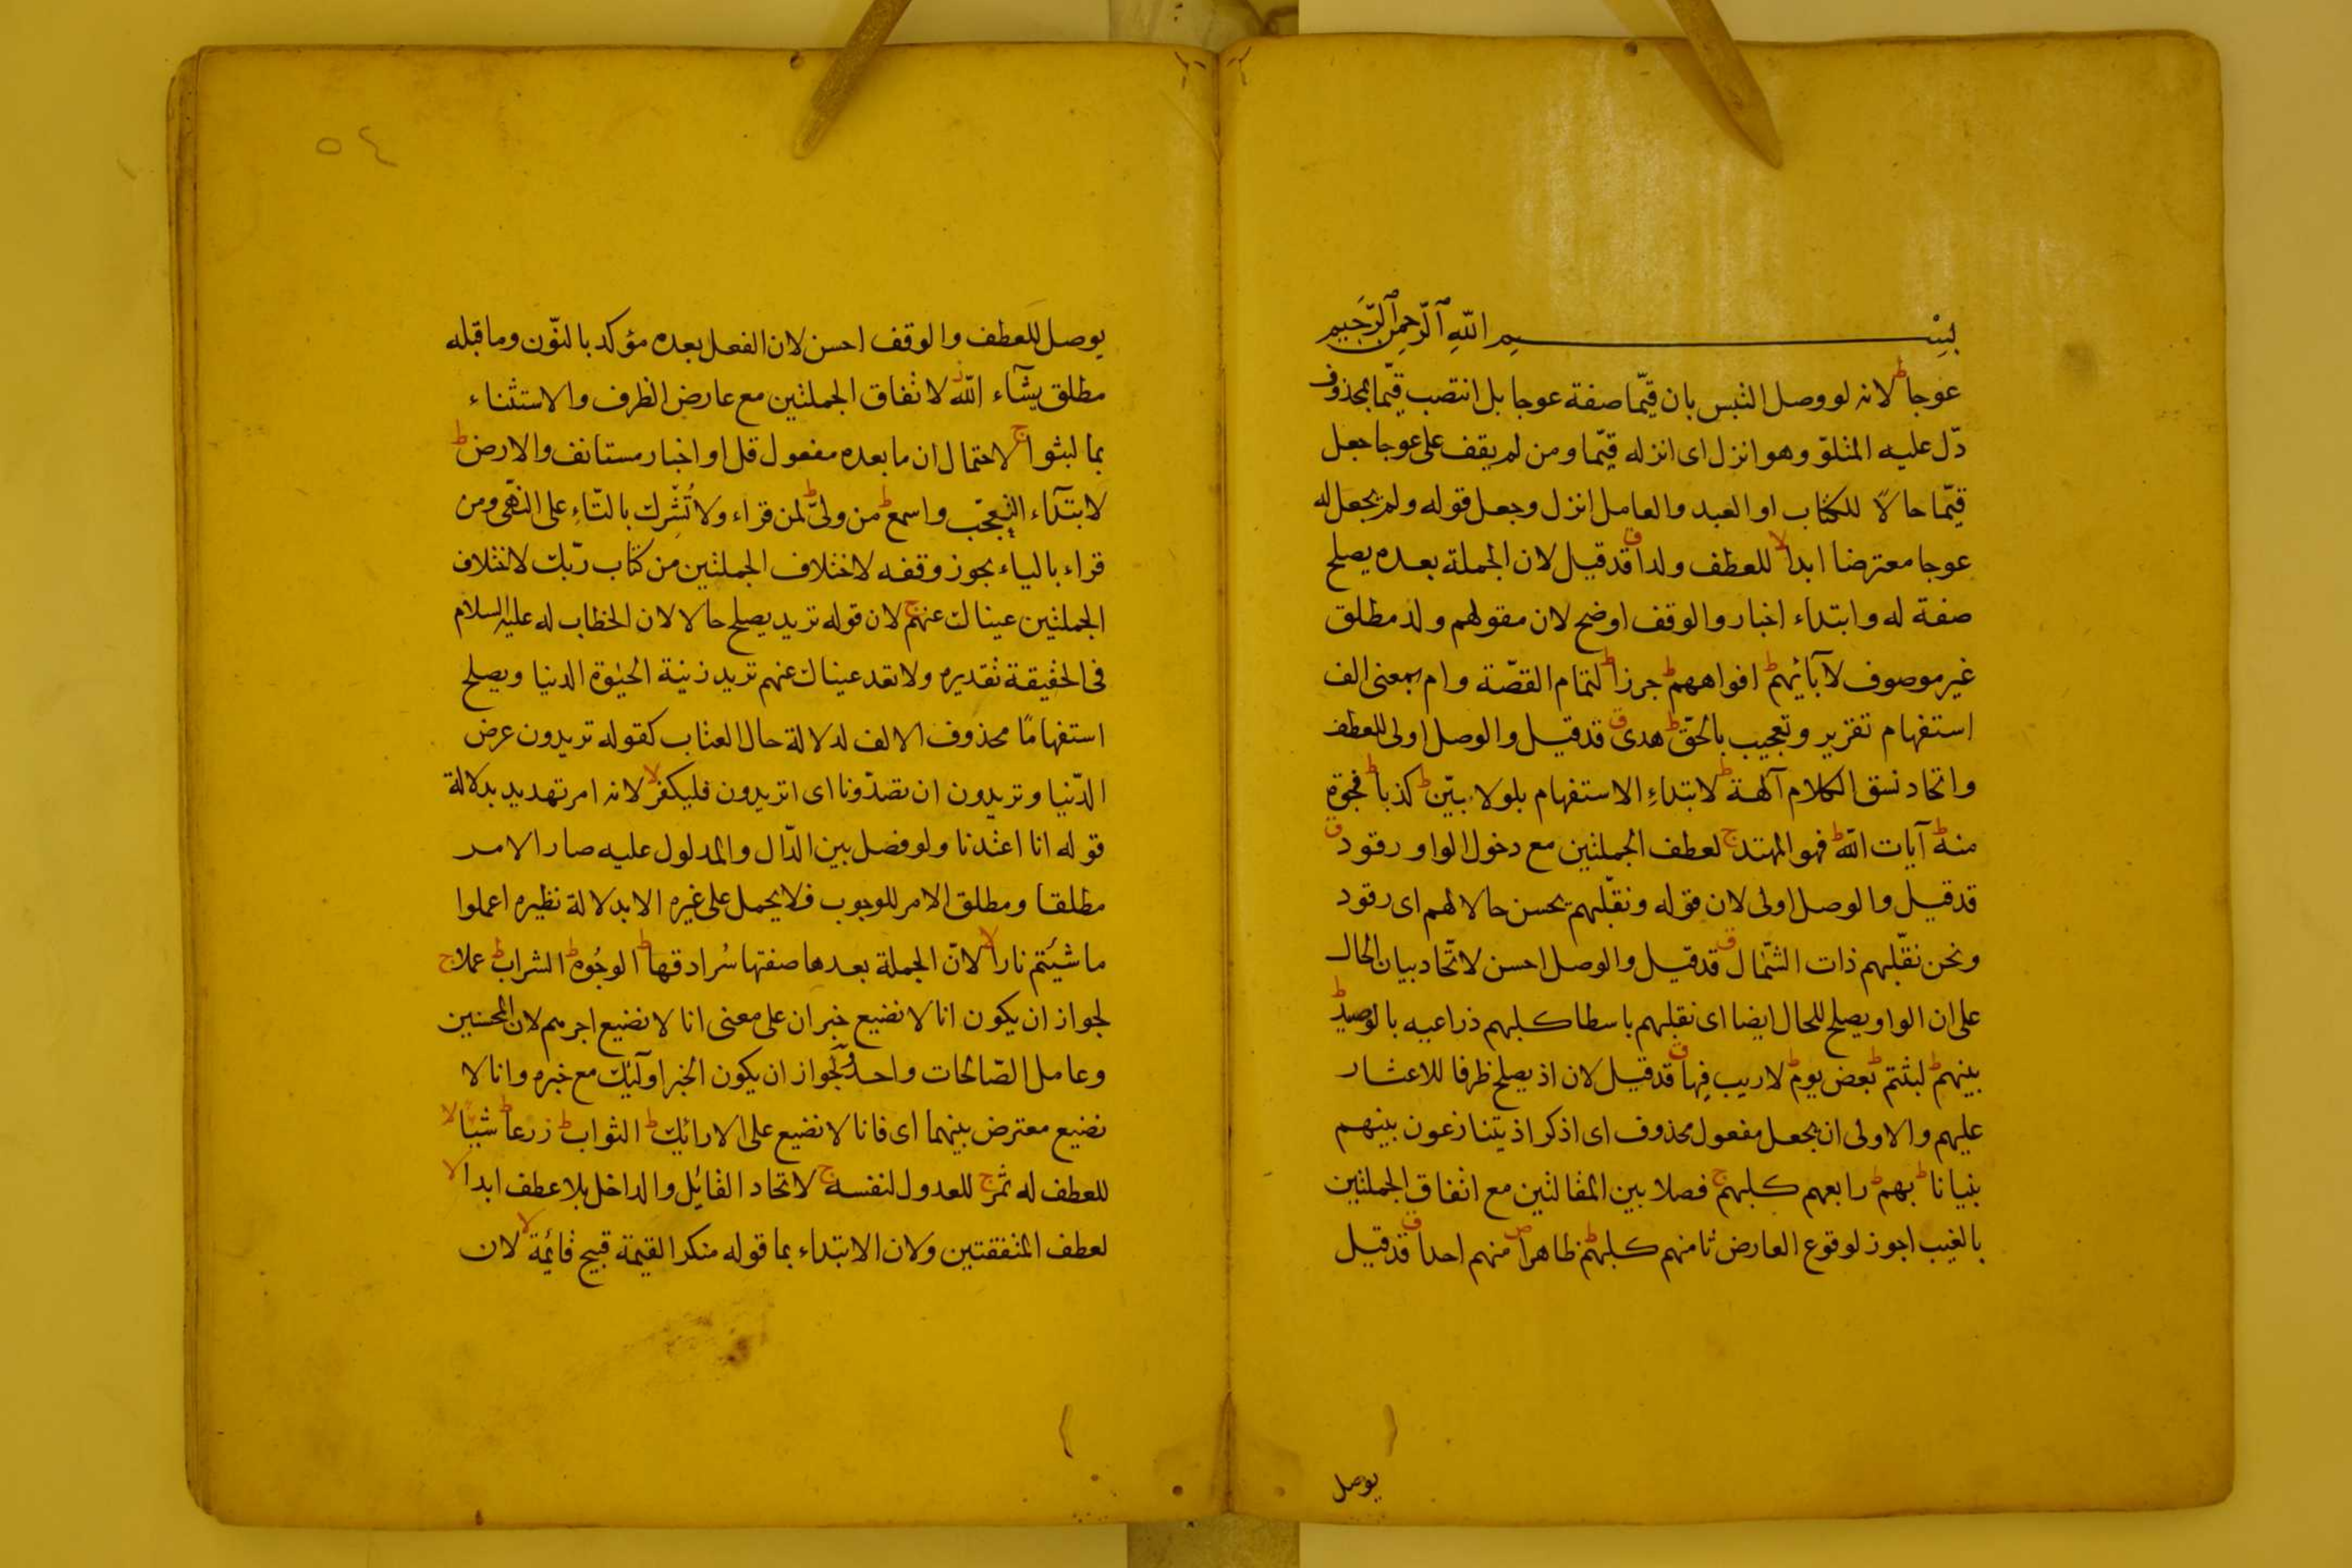 بسم الله الرحمن الرحيم
عوجا ط لانه لو وصل التبس بان قيّما صفة عوجا بل انتصب قيّما بمحذوف
دّل عليه المتلوّ وهو انزل اى انزله قيّما ومن لم يقف على عوجا جعل
قيّما حالاً للكتاب او العبد والعامل انزل وجعل قوله ولم يجعل له
عوجا معترضا ابدا لا للعطف ولدا ق قد قيل لان الجملة بعده يصلح
صفة له وابتداء اخبار والوقف اوضح لان مقولهم ولد مطلق
غير موصوف لآبائهم ط افواههم ط جرزا ط لتمام القصّة وام بمعنى الف
استفهام تقرير وتعجيب بالحقّ ط هدى ق قد قيل والوصل اولى للعطف
واتحاد نسق الكلام آلهة ط لابتداءِ الاستفهام بلولا بيّن ط كذبا ط فجوة
منه ط آيات الله ط فهو المهتد ج لعطف الجملتين مع دخول الواو رقود ق
قد قيل والوصل اولى لان قوله ونقلّبهم يحسن حالا لهم اى رقود
ونحن نقلّبهم ذات الشّمال ق قد قيل والوصل احسن لاتّحاد بيان الحال
على ان الواو يصلح للحال ايضا اى نقلبهم باسطا كلبهم ذراعيه بالوصيد ط
بينهم ط لبثتم ط بعض يوم ط لاريب فيها ق قد قيل لان اذ يصلح ظرفا للاعثار
عليهم والاولى ان يجعل مفعول محذوف اى اذكر اذ يتنازعون بينهم
بنيانا ط بهم ط رابعهم كلبهم ج فصلا بين المقالتين مع اتفاق الجملتين
بالغيب اجوز لوقوع العارض ثامنهم كلبهم ط ظاهرا ص منهم احدا ق قد قيل
يوصل
٥٤
يوصل للعطف والوقف احسن لان الفعل بعده مؤكد بالنّون وما قبله
مطلق يشآء الله ز لاتفاق الجملتين مع عارض الظرف والاستثناء
بما لبثوا ج لاحتمال ان ما بعده مفعول قل او اخبار مستانف والارض ط
لابتدآء التعجّب واسمع ط من ولىّ ط لمن قراء ولا تُشْرك بالتّاءِ على النّهى ومن
قراء بالياء يجوز وقفه لاختلاف الجملتين من كتاب ربّك لاختلاف
الجملتين عيناك عنهم ج لان قوله تريد يصلح حالا لان الخطاب له عليه السلام
فى الحقيقة تقديره ولا تعد عيناك عنهم تريد زينة الحيٰوة الدنيا ويصلح
استفهامًا محذوف الالف لدلالة حال العتاب كقوله تريدون عرض
الدّنيا وتريدون ان تصدّونا اى اتريدون فليكفر لا لانه امر تهديد بدلالة
قوله انا اعتدنا ولو فصل بين الدّال والمدلول عليه صار الامر
مطلقا ومطلق الامر للوجوب فلا يحمل على غيره الا بدلالة نظيره اعملوا
ما شئتم نارا لا لانّ الجملة بعدها صفتها سُرادقها ط الوجُوه ط الشراب ط عملا ج
لجواز ان يكون انا لا نضيع خبر ان على معنى انا لا نضيع اجرهم لان المحسنين
وعامل الصّالحات واحد ولجواز ان يكون الخبر اولٓئك مع خبره وانا لا
نضيع معترض بينهما اى فانا لا نضيع على الارائك ط الثواب ط زرعا ط شيئا لا
للعطف له ثمر ج للعدول لنفسه ج لاتحاد القائل والداخل بلا عطف ابدا لا
لعطف المتفقتين ولان الابتداء بما قوله منكر القيمة قبيح قائمة لا لان